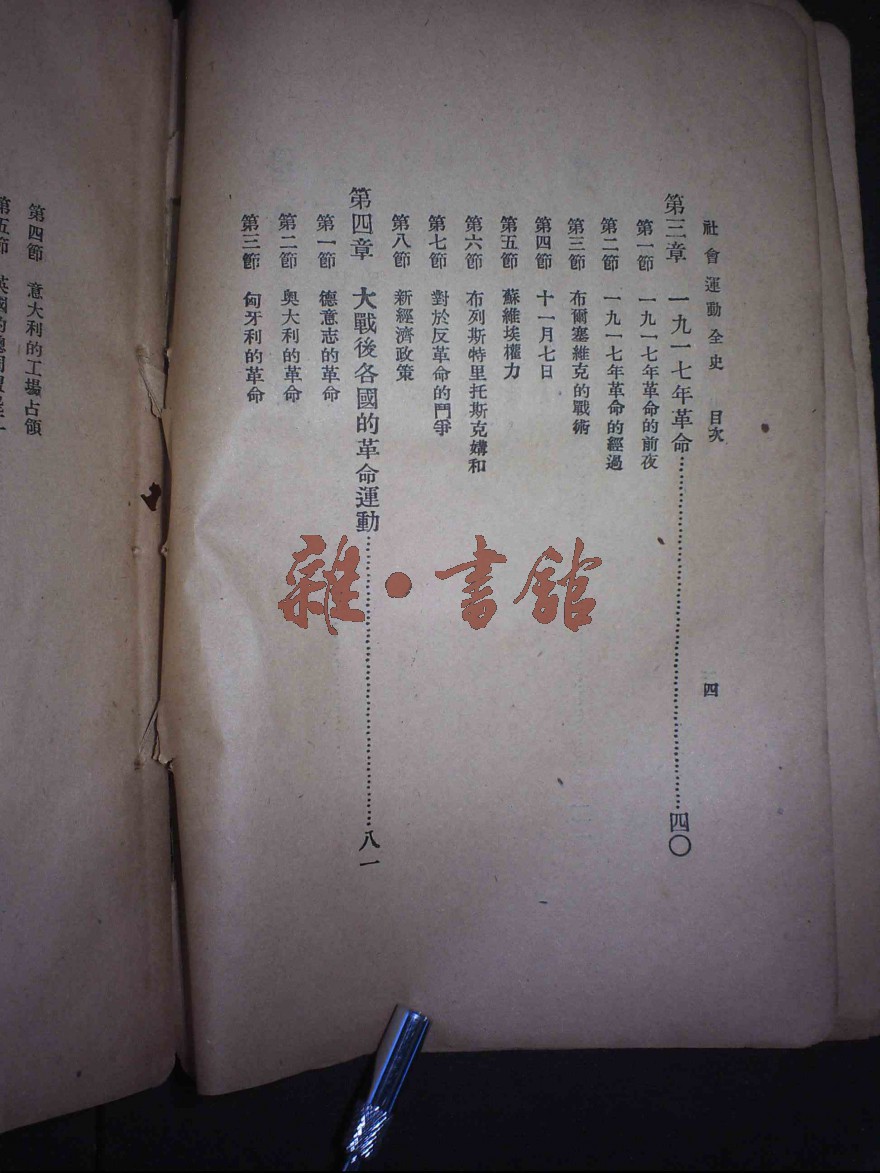 社會運動全史 目次 四
第三章 一九一七年革命⋯⋯⋯⋯⋯⋯⋯⋯⋯⋯四〇
第一節 一九一七年革命的前夜
第二節 一九一七年革命的經過
第三節 布爾塞維克的戰術
第四節 十一月七日
第五節 蘇維埃權力
第六節 布列斯特里托斯克媾和
第七節 對於反革命的鬥爭
第八節 新經濟政策
第四章 大戰後各國的革命運動⋯⋯⋯⋯⋯⋯⋯⋯⋯⋯八一
第一節 德意志的革命
第二節 奧大利的革命
第三節 匈牙利的革命
第四節 意大利的工場占領
第五節 英國的總同盟
雜·書館